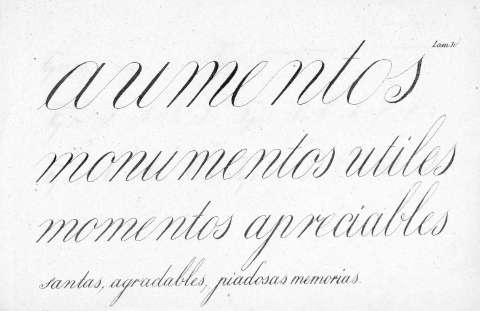 aumentos
monumentos utiles
momentos apreciables
santas, agradables, piadosas memorias.